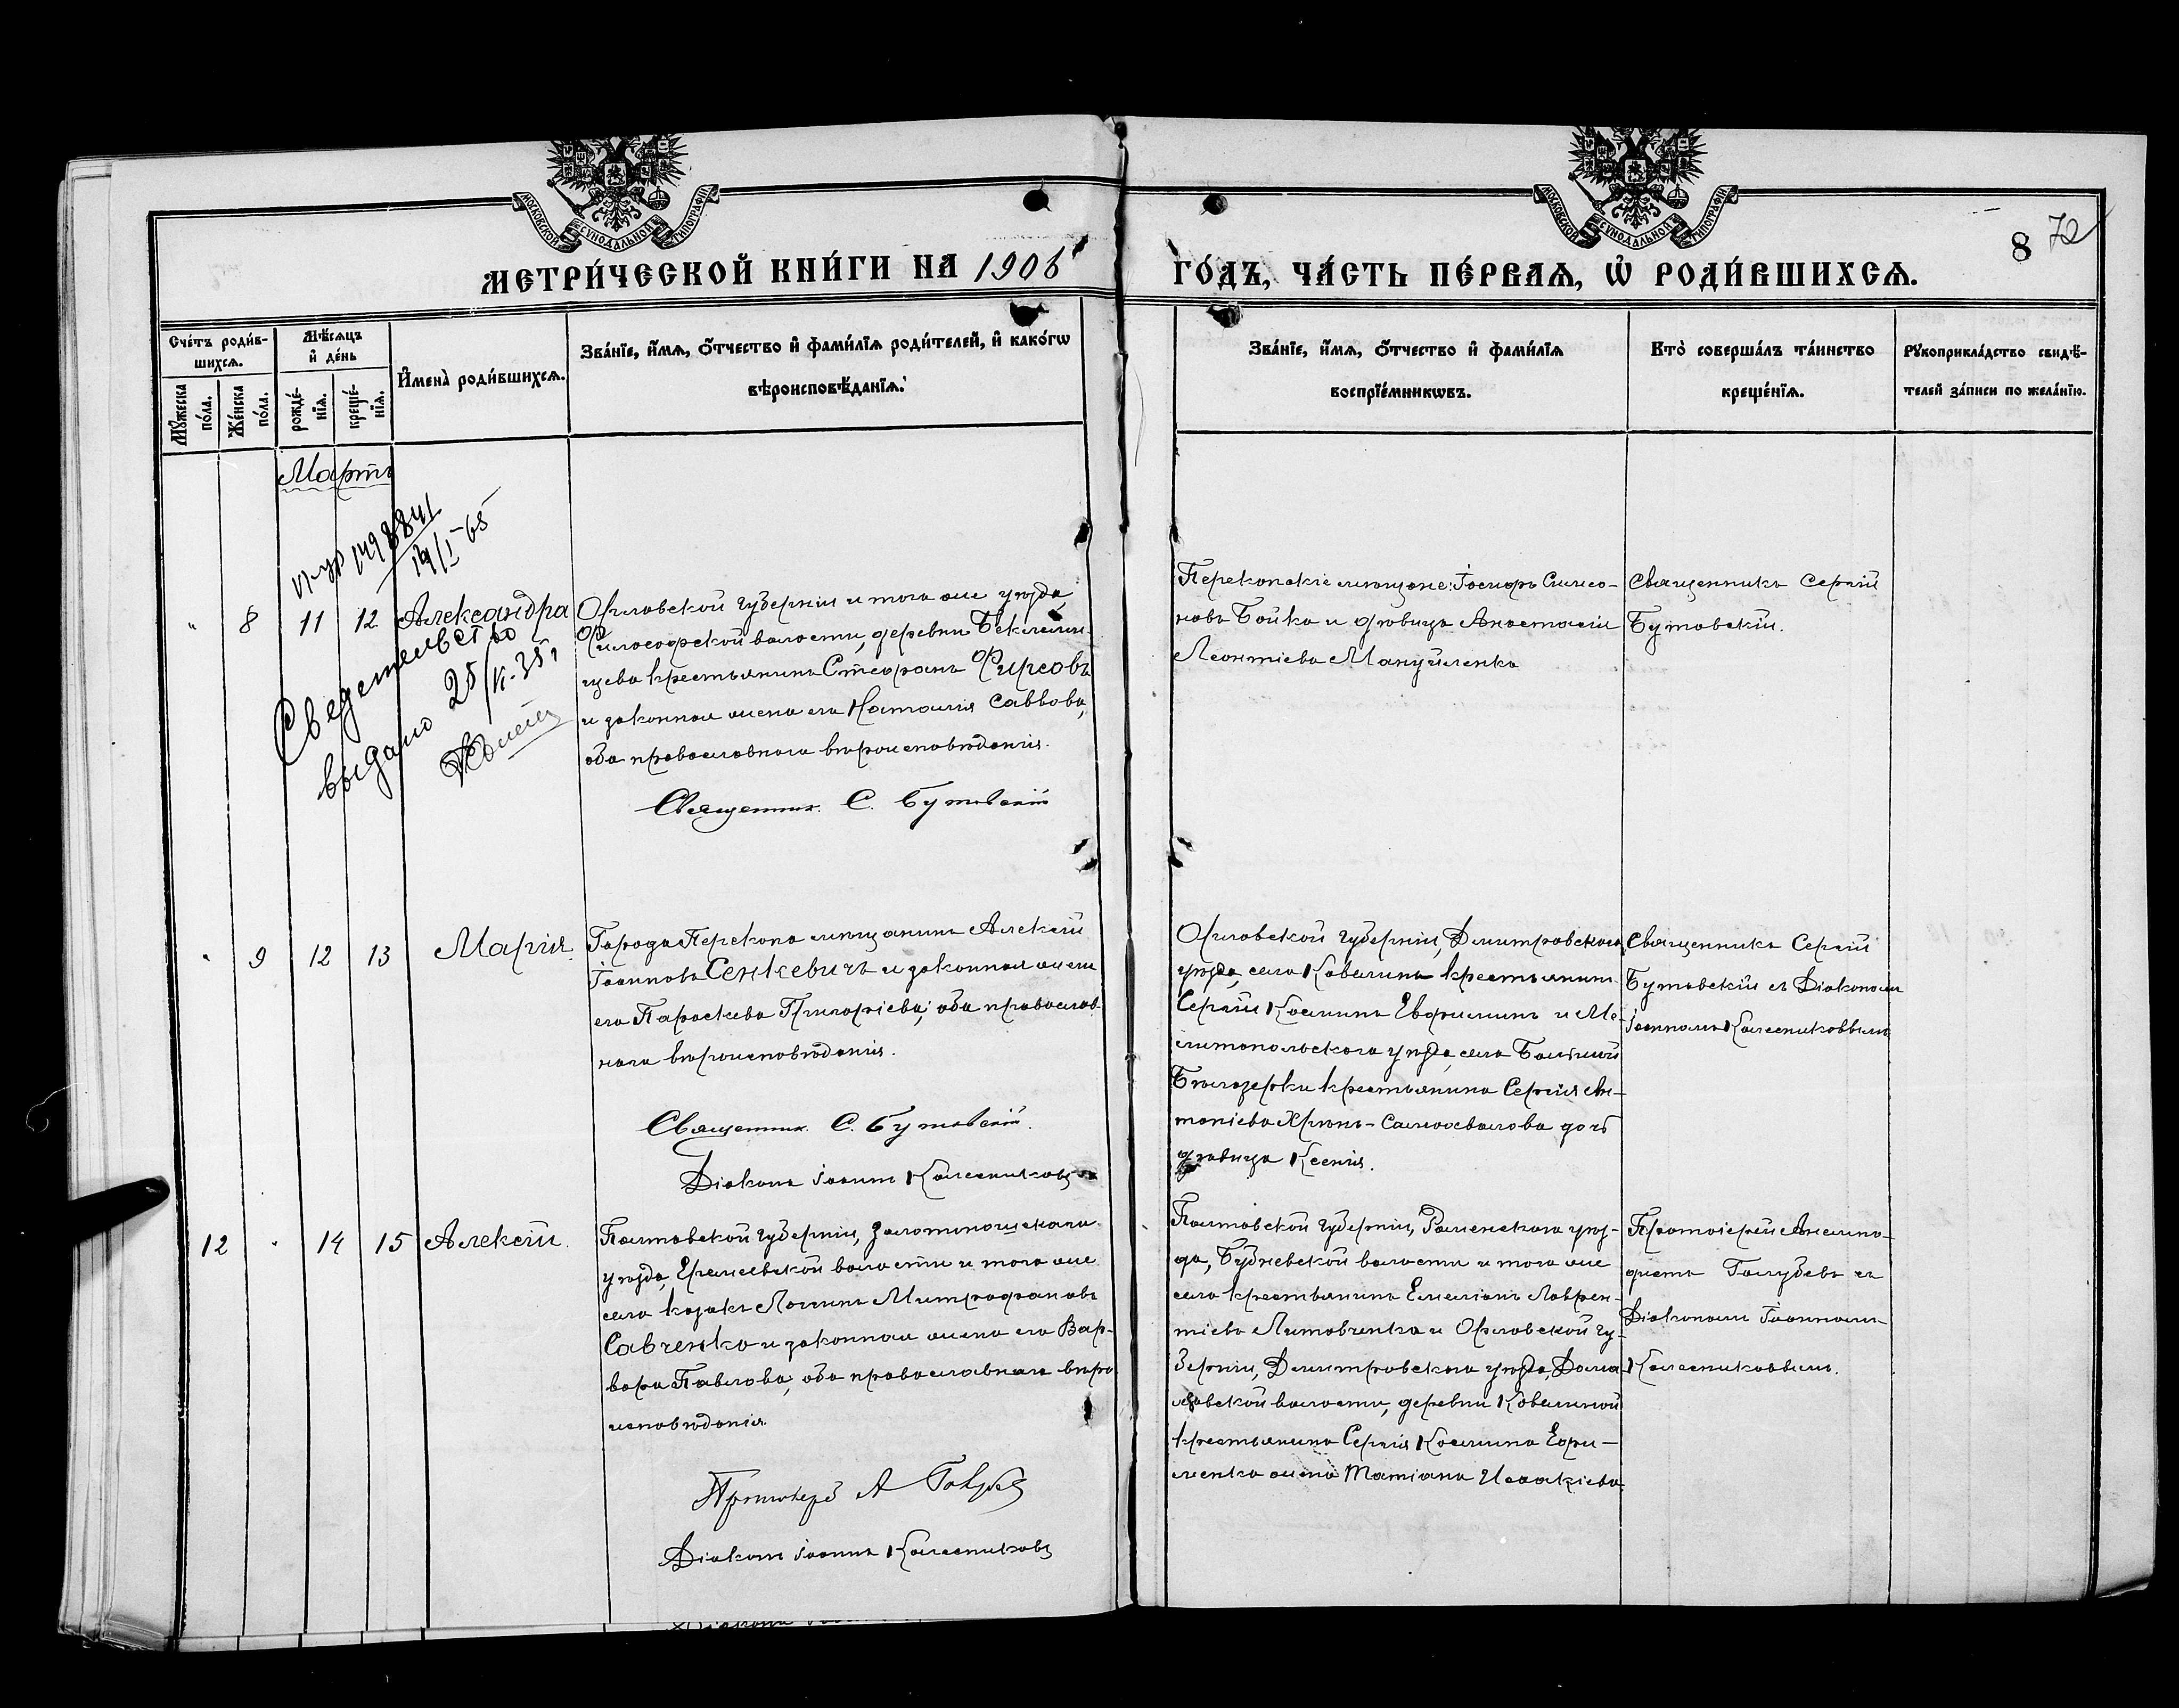 МОСКОВСКОЙ СѴНОДАЛЬНОЙ ТИПОГРАФІИ
МОСКОВСКОЙ СѴНОДАЛЬНОЙ ТИПОГРАФІИ
8 72
МЕТРИ́ЧЕСКОЙ КНИ́ГИ НА 1906
ГО́ДЪ, ЧА́СТЬ ПЕ́РВАѦ, Ѡ҆ РОДИ́ВШИХСѦ.
Сче́тъ роди́в-
шихсѧ.
Мꙋ́жеска по́ла.
Же́нска по́ла.
Мѣ́сѧцъ
и҆ де́нь
рожде́-
нїѧ.
креще́-
нїѧ.
И҆мена̀ роди́вшихсѧ.
Зва́нїе, и҆́мѧ, ѻ҆́тчество и҆ фами́лїѧ роди́телей, и҆ како́гѡ
вѣроисповѣ́данїѧ.
Зва́нїе, и҆́мѧ, ѻ҆́тчество и҆ фами́лїѧ
воспрїе́мникѡвъ.
Кто̀ соверша́лъ та́инство
креще́нїѧ.
Рꙋкоприкла́дство свидѣ́-
телей за́писи по жела́нїю.
Мартъ
14/I-65
" 8 11 12 Александра
Свидетельство
выдано 25/
Орловской губерніи и того же уѣзда,
Философской волости, деревни Беклеми-
щева крестьянинъ Стефанъ Фирсовъ
и законная жена его Наталія Саввова,
оба православнаго вѣроисповѣданія.
Священник. С. Бутовскій
Перекопскіе мѣщане: Іосифъ Симео-
новъ Бойко и дѣвица Анастасія
Леонтіева Мануйленко
Священникъ Сергій
Бутовскій.
" 9 12 13 Марія.
Города Перекопа мѣщанинъ Алексій
Іоанновъ Сенкевичъ и законная жена
его Параскева Григоріева, оба православ-
наго вѣроисповѣданія.
Священник. С. Бутовскій.
Діаконъ Іоаннъ Колесниковъ
Орловской губерніи, Дмитровскаго
уѣзда, села Ковалина крестьянинъ
Сергій Косминъ Ефриминъ и Ме-
литопольскаго уѣзда, села Большой
Бѣлозерки крестьянина Сергія Ан-
тоніева Хрѣнъ-Самохвалова дочь
дѣвица Ксенія.
Священникъ Сергій
Бутовскій съ Діакономъ
Іоанномъ Колесниковымъ
12 " 14 15 Алексій.
Полтавской губерніи, Золотоношскаго
уѣзда, Еремеевской волости и того же
села козакъ Логинъ Митрофановъ
Савченко и законная жена его Вар-
вара Павлова, оба православнаго вѣро
исповѣданія.
Протоіерей А Голубев
Діаконъ Іоаннъ Колесниковъ
Полтавской губерніи, Роменскаго уѣз-
да, волости и того же
села крестьянинъ Емеліанъ Лаврен-
тіевъ Литовченко и Орловской гу-
берніи, Дмитровскаго уѣзда,
волости, деревни Ковалиной
крестьянина Сергія Космина Ефри-
менко жена Татіана Исаакіева
Протоіерей Анемпо-
дистъ Голубевъ съ
Діакономъ Іоанномъ
Колесниковымъ.